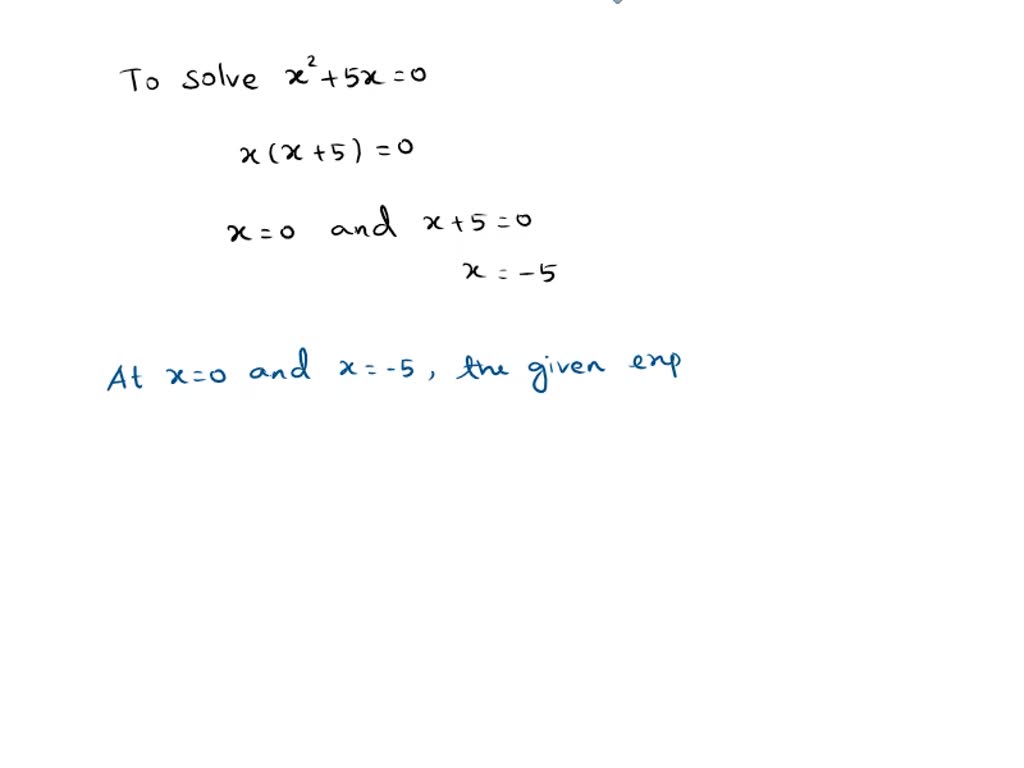 To solve x²+5x=0
x(x+5)=0
x=0 and x+5=0
x=-5
At x=0 and x=-5, the given exp